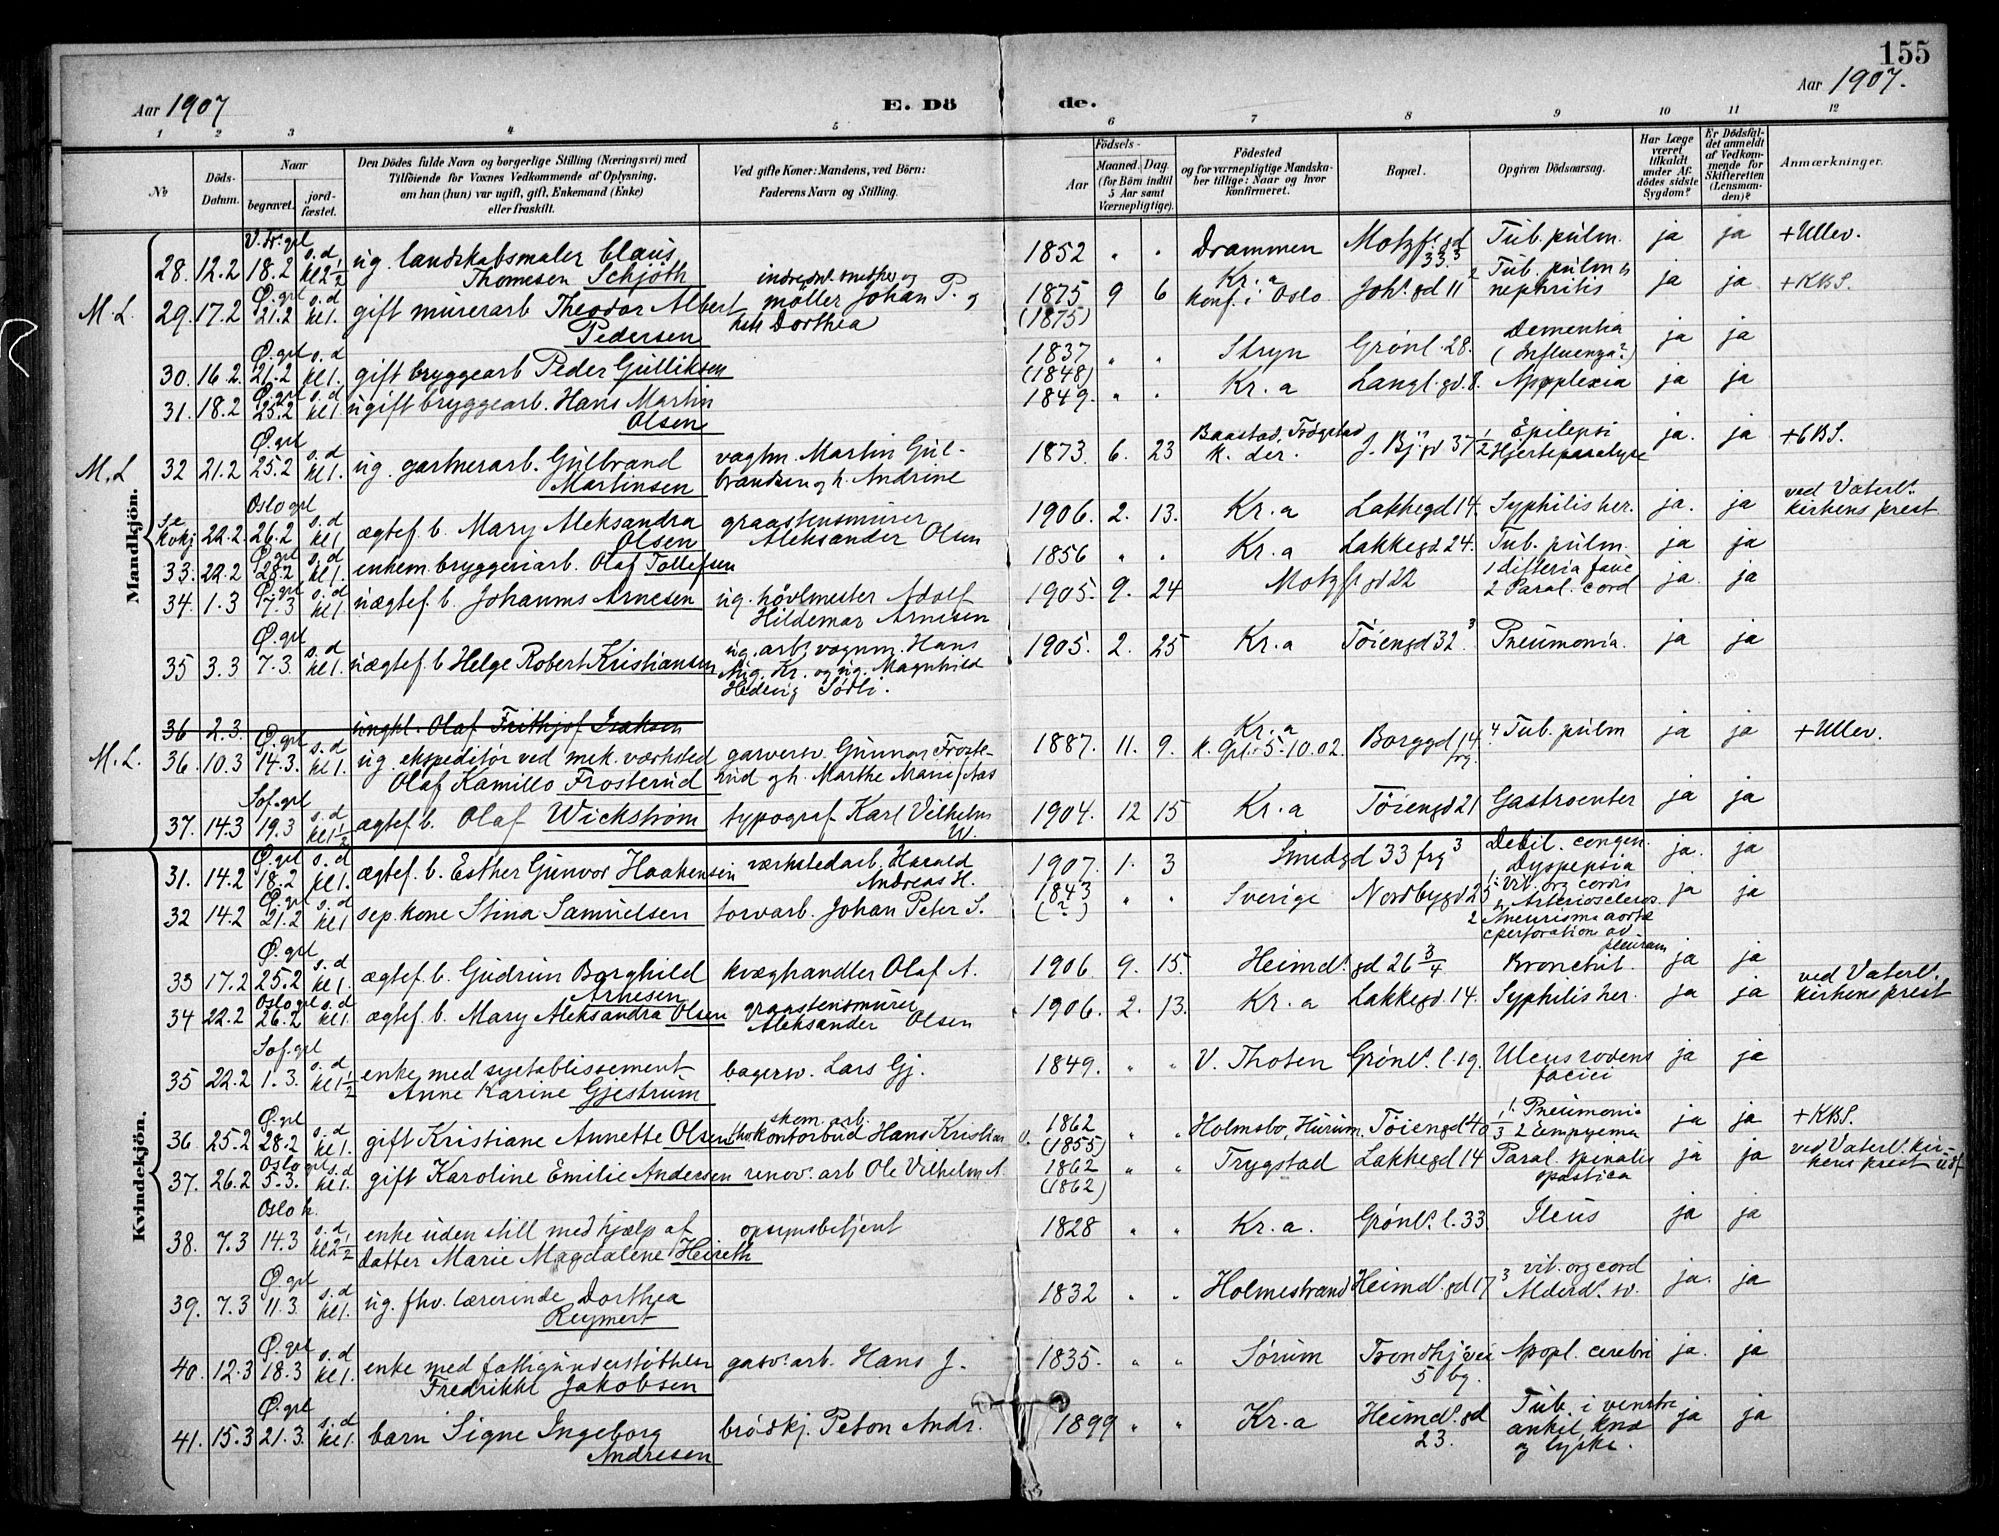 155
Aar 1907
E. Dö
de.
Aar 1907.
1 2 3 4 5 6 7 8 9 10 11 12
№
Döds-Datum.
Naar
begravet.
jord-fæstet.
Den Dödes fulde Navn og borgerlige Stilling (Næringsvei) med
Tilföiende for Voxnes Vedkommende af Oplysning,
om han (hun) var ugift, gift, Enkemand (Enke)
eller fraskilt.
Ved gifte Koner: Mandens, ved Börn:
Faderens Navn og Stilling.
Födsels-
Aar
Maaned. Dag.
(for Börn indtil
5 Aar samt
Værnepligtige).
Födested
og for værnepligtige Mandska-
ber tillige: Naar og hvor
konfirmeret.
Bopæl.
Opgiven Dödsaarsag.
Har Læge
været
tilkaldt
under Af-
dödes sidste
Sygdom?
Er Dödsfal-
det anmeldt
af Vedkom-
mende for
Skifteretten
(Lensman-
den)?
Anmærkninger.
Mandkjön.
V. Fr. grl s. d.
28. 12.2 18.2 kl 2½ ug. landskabsmaler Claus 1852 " " Drammen Motzf. gd 33.³ Tub. pulm. ja ja + Ullev.
Thomesen Schjøth
M. L. 29. 17.2 Ø. grl 21.2 s. d kl 1. gift murerarb Theodor Albert møller Johan P. og 1875 9 6 Kr. a Joh.s gd 11² Tub. pulm ja ja + KBS.
Pedersen h. Dorthea (1875) konf. i Oslo nephritis
30. 16.2. Ø. grl 21.2 s. d kl 1. gift bryggearb Peder Gulliksen 1837 " " Stryn Grønl. 28. Dementia (Influenza?) ja ja
(1848)
31. 18.2 Ø. grl 25.2 s. d kl 1. ugift bryggearb. Hans Martin 1849. " " Kr. a Langl. gd. 8. Apoplexia ja ja
Olsen
M. L 32 21.2 Ø. grl 25.2 s. d kl 1. ug. gartnerarb. Gulbrand vagtm. Martin Gul- 1873. 6. 23 Baastad, Trøgstad J. Bj. gd 37 Epilepsi ja. ja
Martinsen brandsen og h. Andrine k. der. Hjerteparalyse
Se Kvkj 22.2. Oslo grl 26.2 s. d kl 1. ægtef. b. Mary Aleksandra graastensmurer 1906. 2. 13. Kr. a Lakkegd 14. Syphilis her. ja. ja ved Vaterl.s
Olsen Aleksander Olsen kirkens prest
33. 22.2 Ø. grl 28.2 s. d kl 1. enkem. bryggeriarb. Olaf Tollefsen 1856 " " Kr. a Lakkegd. 24. Tub. pulm. ja ja
34. 1.3 Ø. grl 7.3 s. d kl 1. uægtef. b. Johannes Arnesen ug. høvlmester Adolf 1905. 9. 24 Motzf. gd 22 1 difteria fauc ja. ja
Hildemar Arnesen 2 Paral. cord
35 3.3 Ø. grl 7.3. s. d kl 1. uægtef. b Helge Robert Kristiansen ug. arb. vognm. Hans 1905. 2. 25 Kr. a Töiengd 32³ Pneumonia. ja ja
Aug. Kr. og ug. Magnhild
Hedvig Sødli.
36 2.3. ungkl. Olaf Frithjof Isaksen
M. L. 36. 10.3 Ø. grl 14.3. s. d kl 1. ug. ekspeditør ved mek. værksted garversv. Gunnar Froste- 1887. 11. 9. Kr. a Borggd 14⁴ Tub. pulm ja ja + Ullev.
Olaf Kamillo Frosterud rud og h. Marthe Marie f. Aas k. Grl. 5-10.02. frg.
37. 14.3 Sof. grl 19.3 s. d kl 1½ ægtef. b. Olaf Wickstrøm typograf Karl Vilhelm W. 1904. 12 15 Kr. a Töiengd 21 Gastroenter ja ja
Kvindekjön.
31. 14.2 Ø. grl 18.2 s. d kl 1. ægtef. b. Esther Gunvor Haakensen værkstedarb. Harald 1907. 1. 3 Smedgd 33 frg³ Debil. congen. ja. ja
Andreas H. Dyspepsia
32 14.2 Ø. grl 21.2 s. d kl 1 sep. kone Stina Samuelsen torvarb. Johan Peter S. 1843 " " Sverige Nordbygd 25 1. Vit. org cordis ja ja
(?) Arterioscleros.
2 Aneurisma aortæ
c perforation av pleuram
33 17.2 Ø. grl 25.2 s. d kl 1. ægtef. b. Gudrun Borghild kvæghandler Olaf A. 1906. 9. 15. Heimd.s gd 26 ¾ Bronchit. ja ja
Arnesen
34 22.2 Oslo grl 26.2 s. d kl 1. ægtef. b. Mary Aleksandra Olsen graastensmurer 1906. 2. 13. Kr. a Lakkegd. 14. Syphilis her. ja ja ved Vaterl.s
Aleksander Olsen kirkens prest
35 22.2 Sof. grl 1.3. s. d kl 1½ enke med syetablissement bagersv. Lars Gj. 1849. " " V. Thoten Grønl.s l. 19. Ulcus rodens ja ja
Anne Karine Gjestrum faciei
36. 25.2 Ø. grl 28.2 s. d kl 1. gift Kristiane Annette Olsen skom. arb. kontorbud Hans Kristian O. 1862 " " Holmsbo, Hurum. Töiengd 40 1. Pneumonia ja ja + KBS.
(1855) 2 Empyema
37. 26.2 Oslo grl 5.3. s. d kl 1. gift Karoline Emilie Andersen renov. arb Ole Vilhelm A. 1862 " " Trygstad Lakkegd 14 Paral. spinalis ja ja ved Vaterl. kir-
(1862) spastica kens prest
38. 7.3 Oslo k. 14.3 s. d. kl 2½ enke uden still med hjælp af opsynsbetjent 1828 " " Kr. a. Grønl.s l. 33. Ileus ja ja
datter Marie Magdalene Heireth
39. 7.3 Ø. grl 11.3 s. d kl 1. ug. fhv. lærerinde Dorthea 1832 " " Holmestrand Heimd.s gd 17³ vit. org cord ja. ja
Reymert Alderd.s sv.
40. 12.3 Ø. grl 18.3 s. d kl 1. enke med fattigunderstøttelse gasv. arb. Hans J. 1835. " " Sørum Trondhj.vei Apopl. cerebri ja. ja
Fredrikke Jakobsen 5 bg.
41. 15.3 Ø. grl 21.3. s. d kl 1. barn Signe Ingeborg brødkj. Peton Andr. 1899 " " Kr. a Heimd.s gd Tub. i venstre ja ja
Andresen 23. ankel, knæ
og lyske.